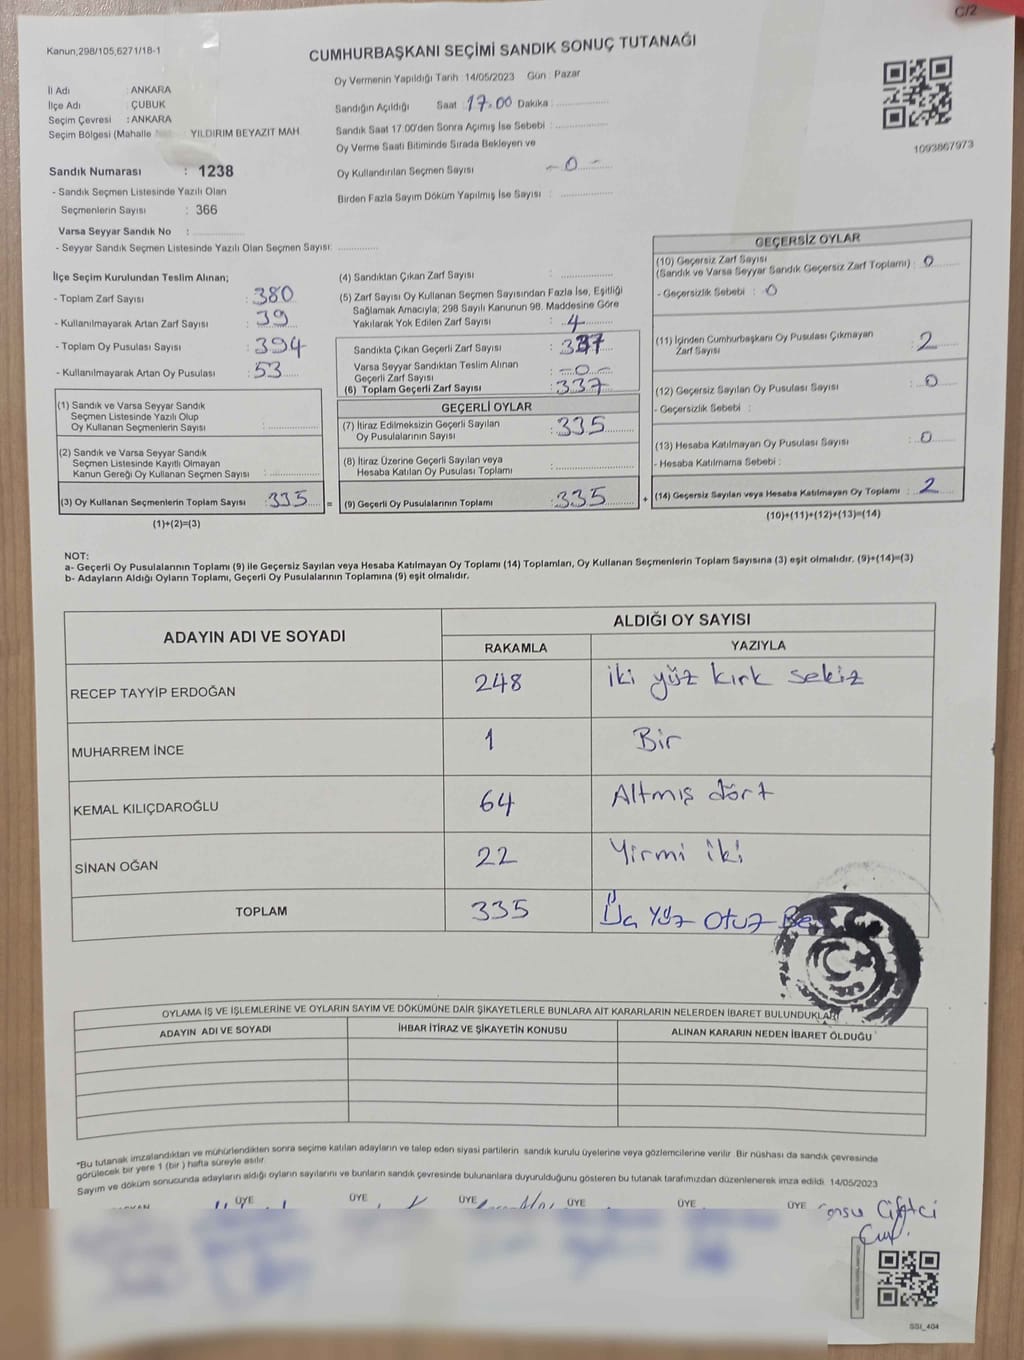 C/2
Kanun,298/105,6271/18-1
CUMHURBAŞKANI SEÇİMİ SANDIK SONUÇ TUTANAĞI
Oy Vermenin Yapıldığı Tarih :14/05/2023 Gün : Pazar
İl Adı : ANKARA
İlçe Adı : ÇUBUK
Seçim Çevresi : ANKARA
Seçim Bölgesi (Mahalle : YILDIRIM BEYAZIT MAH
Sandığın Açıldığı Saat 17.00 Dakika :
Sandık Saat 17:00'den Sonra Açımış İse Sebebi :
Oy Verme Saati Bitiminde Sırada Bekleyen ve
Oy Kullandırılan Seçmen Sayısı - 0 -
Birden Fazla Sayım Döküm Yapılmış İse Sayısı :
1093867973
Sandık Numarası : 1238
- Sandık Seçmen Listesinde Yazılı Olan
Seçmenlerin Sayısı : 366
Varsa Seyyar Sandık No :
- Seyyar Sandık Seçmen Listesinde Yazılı Olan Seçmen Sayısı:
İlçe Seçim Kurulundan Teslim Alınan;
- Toplam Zarf Sayısı : 380
- Kullanılmayarak Artan Zarf Sayısı : 39
- Toplam Oy Pusulası Sayısı : 394
- Kullanılmayarak Artan Oy Pusulası : 53
(1) Sandık ve Varsa Seyyar Sandık
Seçmen Listesinde Yazılı Olup
Oy Kullanan Seçmenlerin Sayısı :
(2) Sandık ve Varsa Seyyar Sandık
Seçmen Listesinde Kayıtlı Olmayan
Kanun Gereği Oy Kullanan Seçmen Sayısı :
(3) Oy Kullanan Seçmenlerin Toplam Sayısı : 335 =
(1)+(2)=(3)
(4) Sandıktan Çıkan Zarf Sayısı :
(5) Zarf Sayısı Oy Kullanan Seçmen Sayısından Fazla İse, Eşitliği
Sağlamak Amacıyla; 298 Sayılı Kanunun 98. Maddesine Göre
Yakılarak Yok Edilen Zarf Sayısı : 4
Sandıkta Çıkan Geçerli Zarf Sayısı : 337
Varsa Seyyar Sandıktan Teslim Alınan
Geçerli Zarf Sayısı : -0-
(6) Toplam Geçerli Zarf Sayısı : 337
GEÇERLİ OYLAR
(7) İtiraz Edilmeksizin Geçerli Sayılan
Oy Pusulalarının Sayısı : 335
(8) İtiraz Üzerine Geçerli Sayılan veya
Hesaba Katılan Oy Pusulası Toplamı :
(9) Geçerli Oy Pusulalarının Toplamı : 335 +
GEÇERSİZ OYLAR
(10) Geçersiz Zarf Sayısı
(Sandık ve Varsa Seyyar Sandık Geçersiz Zarf Toplamı) : 0
- Geçersizlik Sebebi : 0
(11) İçinden Cumhurbaşkanı Oy Pusulası Çıkmayan
Zarf Sayısı : 2
(12) Geçersiz Sayılan Oy Pusulası Sayısı : 0
- Geçersizlik Sebebi :
(13) Hesaba Katılmayan Oy Pusulası Sayısı : 0
- Hesaba Katılmama Sebebi :
(14) Geçersiz Sayılan veya Hesaba Katılmayan Oy Toplamı : 2
(10)+(11)+(12)+(13)=(14)
NOT:
a- Geçerli Oy Pusulalarının Toplamı (9) ile Geçersiz Sayılan veya Hesaba Katılmayan Oy Toplamı (14) Toplamları, Oy Kullanan Seçmenlerin Toplam Sayısına (3) eşit olmalıdır. (9)+(14)=(3)
b- Adayların Aldığı Oyların Toplamı, Geçerli Oy Pusulalarının Toplamına (9) eşit olmalıdır.
ADAYIN ADI VE SOYADI ALDIĞI OY SAYISI
RAKAMLA YAZIYLA
RECEP TAYYİP ERDOĞAN 248 iki yüz kırk sekiz
MUHARREM İNCE 1 Bir
KEMAL KILIÇDAROĞLU 64 Altmış dört
SİNAN OĞAN 22 Yirmi iki
TOPLAM 335 Üç Yüz Otuz Be
OYLAMA İŞ VE İŞLEMLERİNE VE OYLARIN SAYIM VE DÖKÜMÜNE DAİR ŞİKAYETLERLE BUNLARA AİT KARARLARIN NELERDEN İBARET BULUNDUKLARI
ADAYIN ADI VE SOYADI İHBAR İTİRAZ VE ŞİKAYETİN KONUSU ALINAN KARARIN NEDEN İBARET OLDUĞU
*Bu tutanak imzalandıktan ve mühürlendikten sonra seçime katılan adayların ve talep eden siyasi partilerin sandık kurulu üyelerine veya gözlemcilerine verilir. Bir nüshası da sandık çevresinde
görülecek bir yere 1 (bir ) hafta süreyle asılır.
Sayım ve döküm sonucunda adayların aldığı oyların sayılarını ve bunların sandık çevresinde bulunanlara duyurulduğunu gösteren bu tutanak tarafımızdan düzenlenerek imza edildi. 14/05/2023
ÜYE ÜYE ÜYE ÜYE ÜYE ÜYE Çiftci
SSI_404